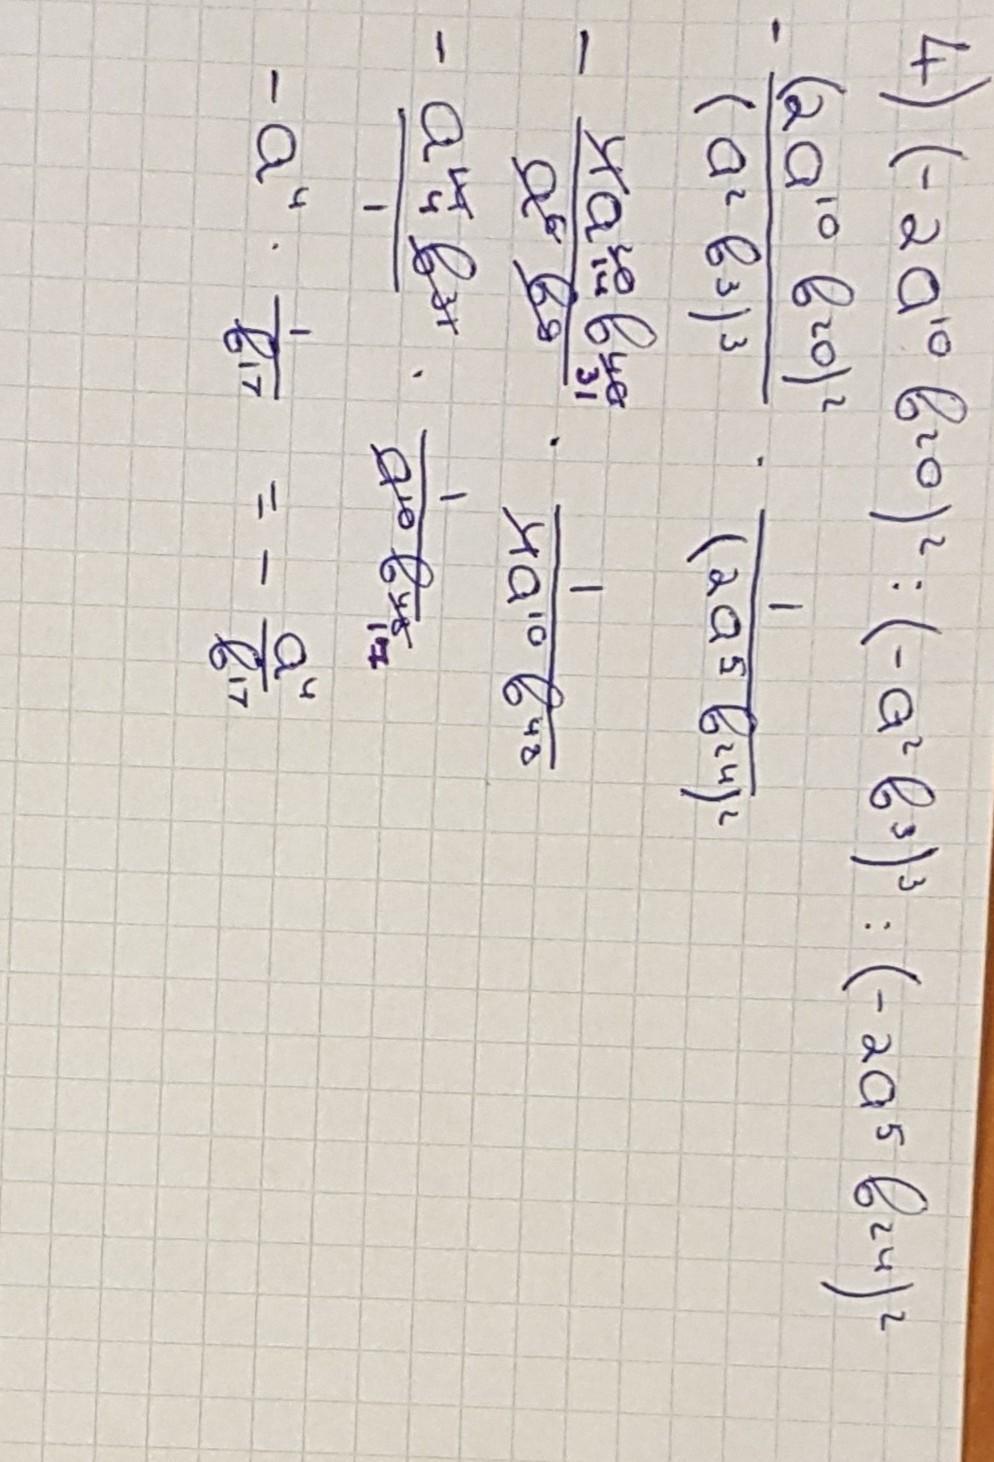 4) (-2a¹⁰b²⁰)² : (-a²b³)³ : (-2a⁵b²⁴)²
- (2a¹⁰b²⁰)² / (a²b³)³ · 1 / (2a⁵b²⁴)²
- 4a²⁰ 14 b⁴⁰ 31 / a⁶b⁹ · 1 / 4a¹⁰b⁴⁸
- a¹⁴ 4 b³¹ / 1 · 1 / a¹⁰b⁴⁸ 17
- a⁴ · 1 / b¹⁷ = - a⁴ / b¹⁷